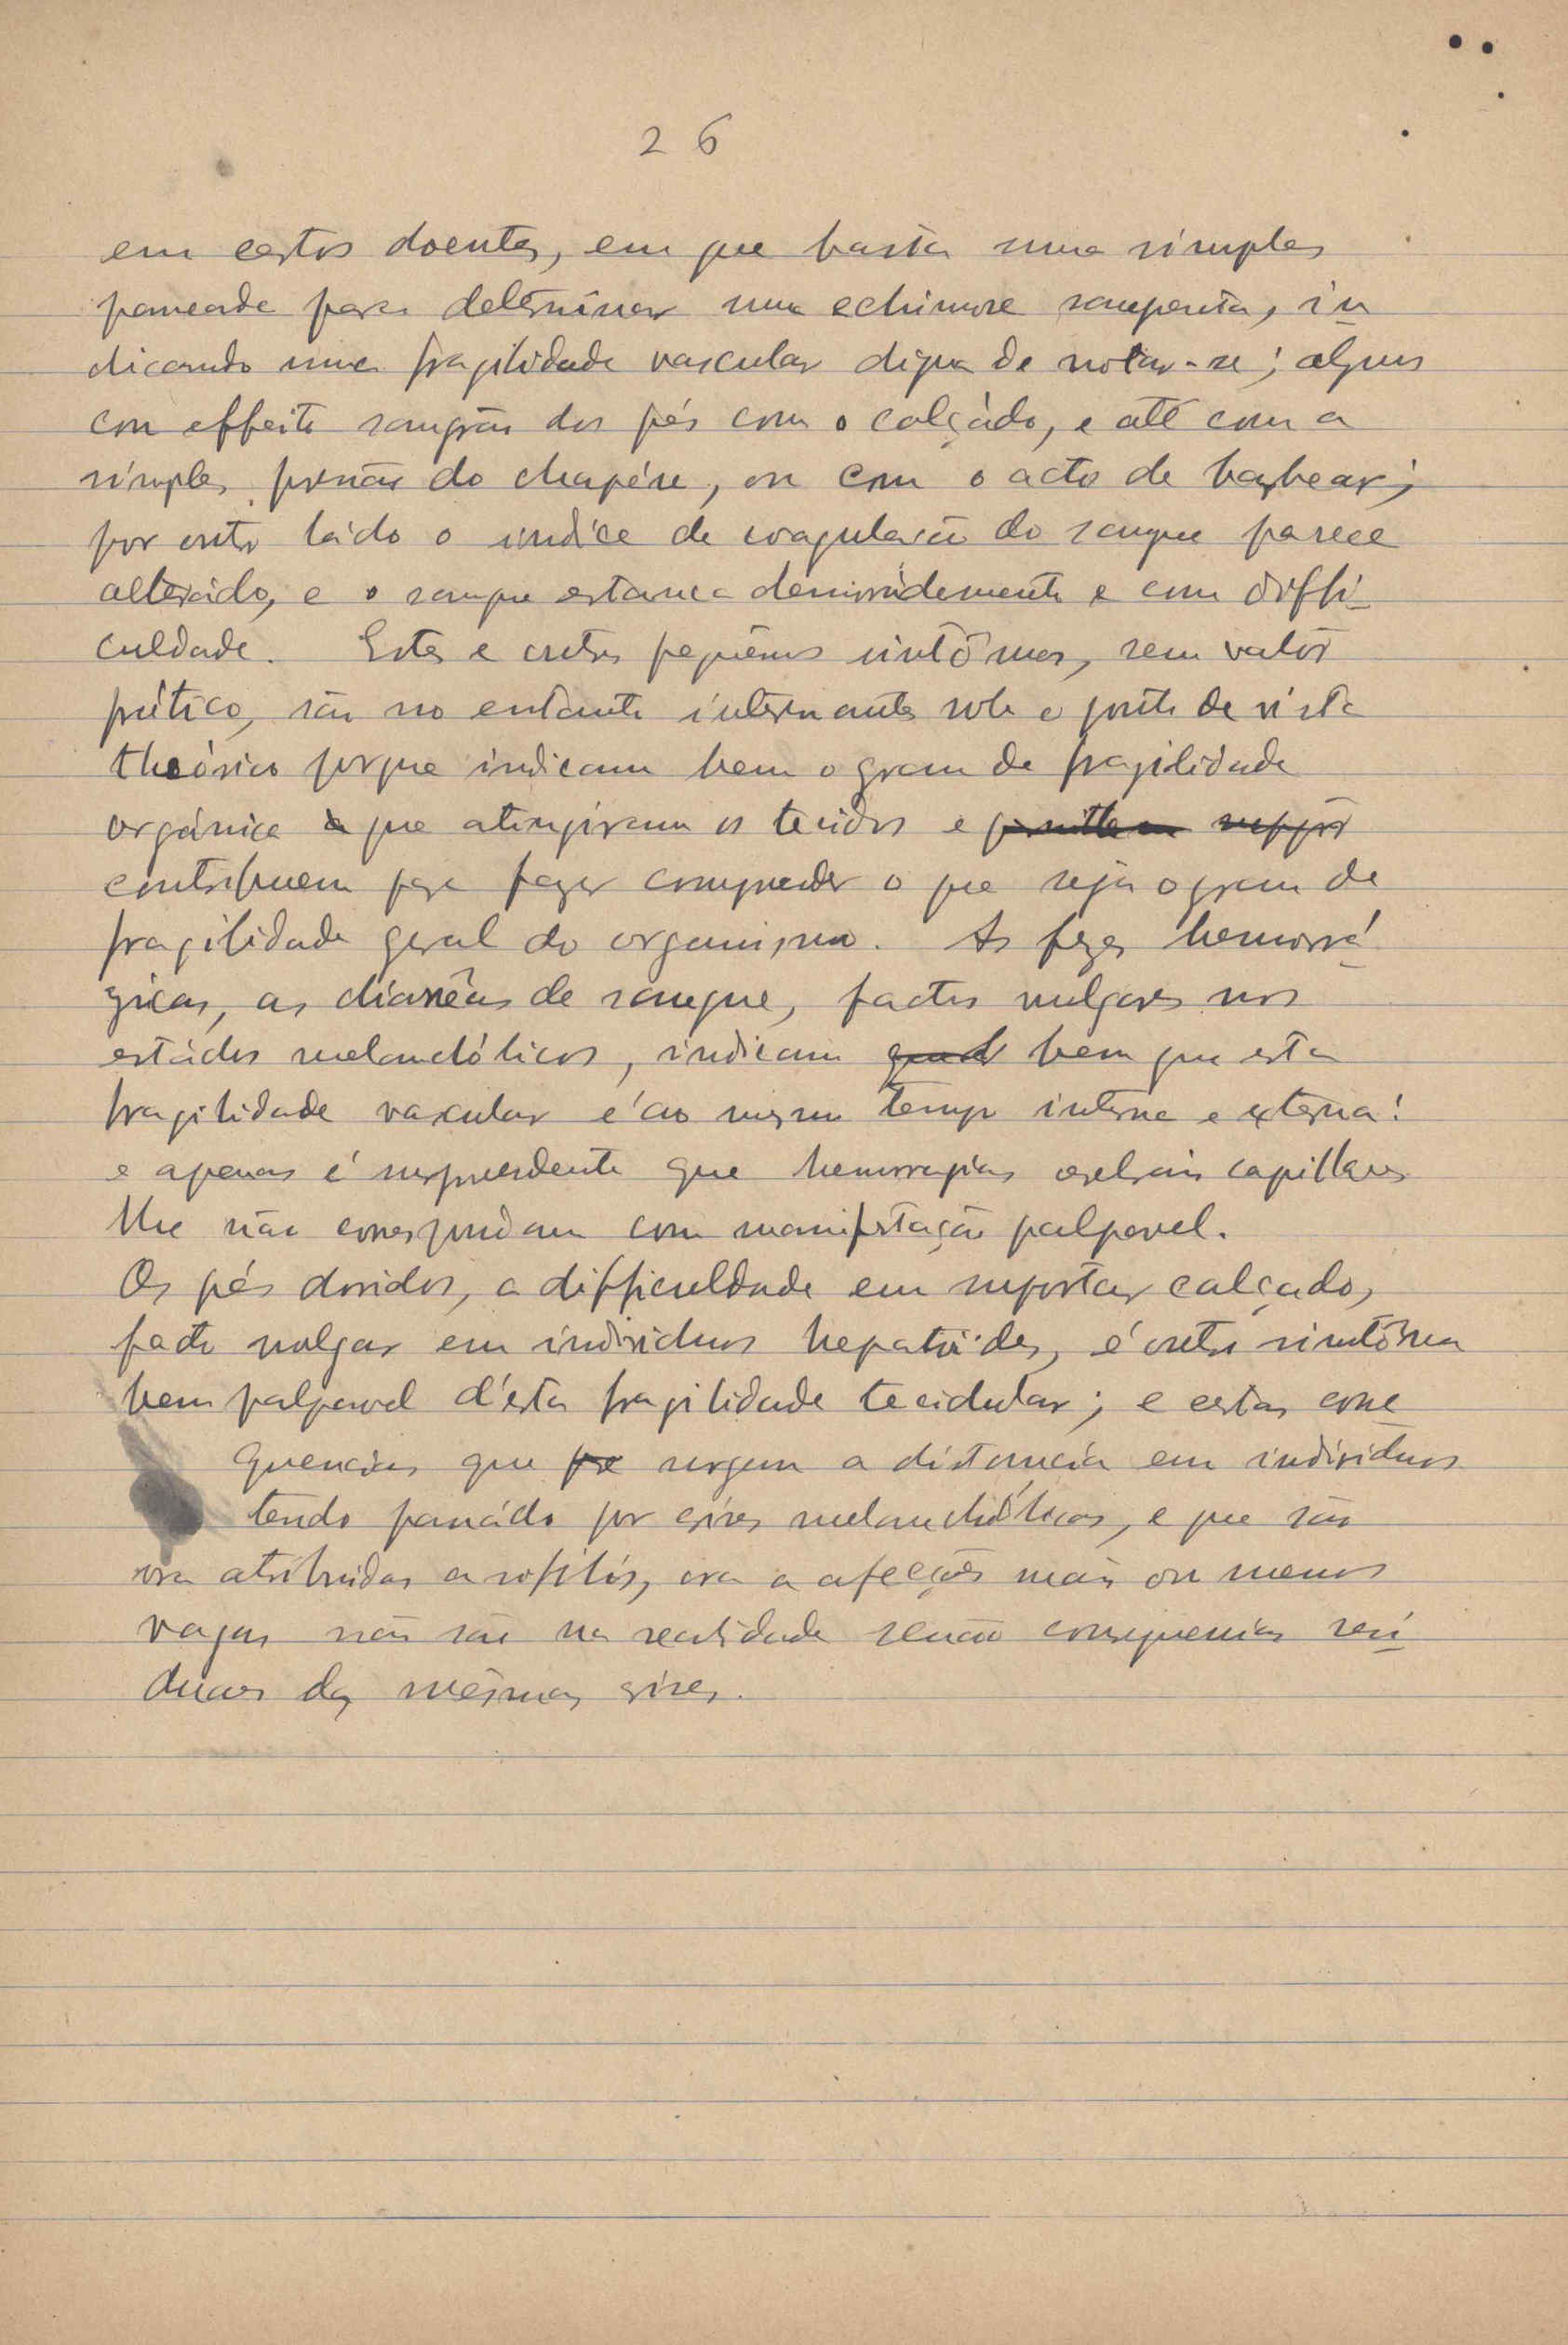 26
em certos doentes, em que basta uma simples
pancada para determinar uma echimose sanguenta, in
dicando uma fragilidade vascular digna de notar-se; alguns
com effeito sangrão dos pés com o calçádo, e até com a
simples pressão do chapéu, ou com o acto de barbear;
por outro ládo o indíce de coagulação do sangue parece
alterádo, e o sangue estanca demoradamente e com diffi-
culdade. Estes e outros pequênos sintômas, sem valôr
prático, são no entanto interessantes sob o ponto de vista
theórico porque indicam bem o grau de fragilidade
orgánica a que atingiram os tecidos e permittem suppôr
contribuem para fazer comprender o que seja o grau de
fragilidade geral do organismo. As fezes hemorrá-
gicas, as diarrêas de sangue, factos vulgares nos
estádos melancólicos, indicam bem que esta
fragilidade vascular é ao mesmo tempo interna e externa:
e apenas é surprendente que hemorragias cerebrais capillares
lhe não correspondam com manifestação palpavel.
Os pés doridos, a difficuldade em suportar calçado,
facto vulgar em individuos hepatóides, é outro sintôma
bem palpavel d'esta fragilidade tecidular; e certas conse
quencias que surgem a distancia em individuos
tendo passádo por crises melanchólicas, e que são
ora atribuidas a sífilis, ora a afecções mais ou menos
vagas não são na realidade senão consequencias resi
duaes das mesmas crises.